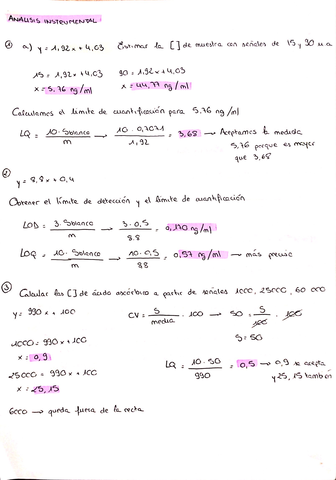 ANALISIS INSTRUMENTAL
① a) y = 1,92x + 4,03 Estimar la [ ] de muestra con señales de 15 y 90 u.a
15 = 1,92x + 4,03 90 = 1,92x + 4,03
x = 5,76 ng/ml x = 44,77 ng/ml
Calculamos el límite de cuantificación para 5,76 ng/ml
LQ = 10·Sblanco / m = 10·0,7071 / 1,92 = 3,68 → Aceptamos la medida
5,76 porque es mayor
que 3,68
②
y = 8,8x + 0,4
Obtener el límite de detección y el límite de cuantificación
LOD = 3·Sblanco / m = 3·0,5 / 8.8 = 0,170 ng/ml
LOQ = 10·Sblanco / m = 10·0,5 / 88 = 0,57 ng/ml → más preciso
③ Calcular las [ ] de ácido ascórbico a partir de señales 1000, 25000, 60 000
y = 990x + 100 CV = S / media · 100 → 50 = S / 100 · 100
S = 50
1000 = 990x + 100
x = 0,9
LQ = 10·50 / 990 = 0,5 → 0,9 se acepta
25000 = 990x + 100 y 25,15 también
x = 25,15
6000 → queda fuera de la recta